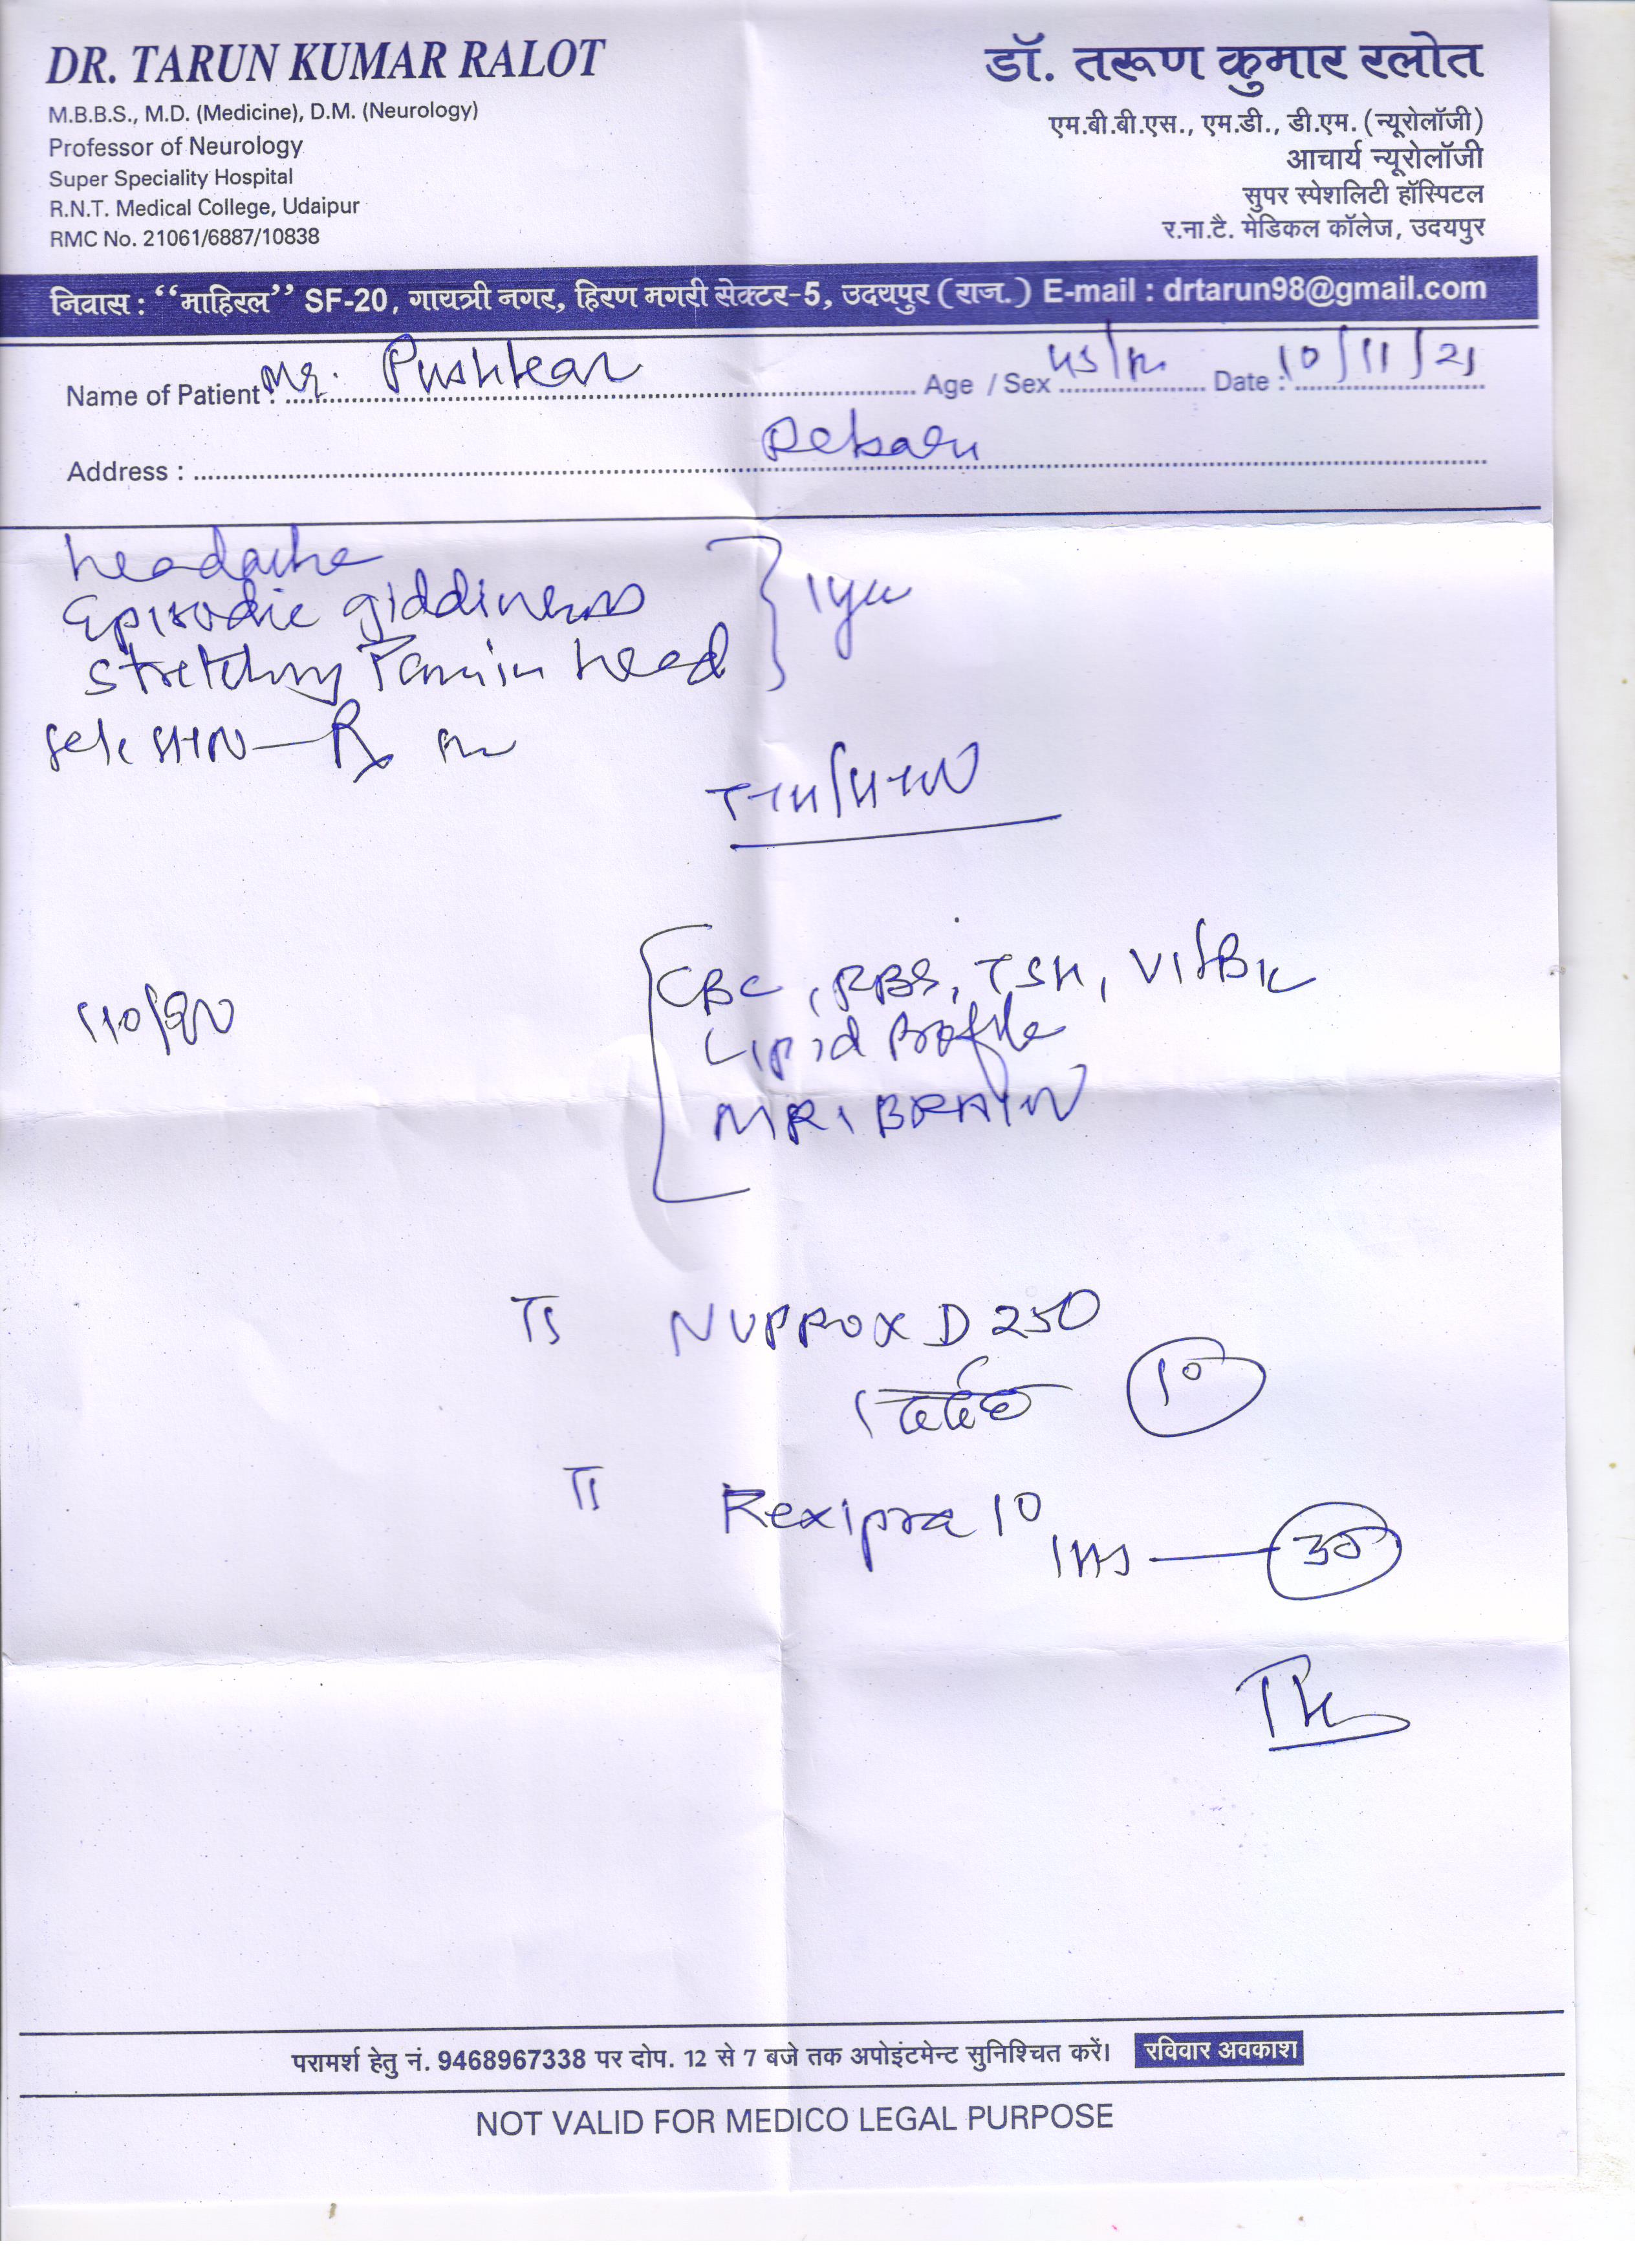 DR. TARUN KUMAR RALOT
M.B.B.S., M.D. (Medicine), D.M. (Neurology)
Professor of Neurology
Super Speciality Hospital
R.N.T. Medical College, Udaipur
RMC No. 21061/6887/10838
डॉ. तरूण कुमार रलोत
एम.बी.बी.एस., एम.डी., डी.एम. (न्यूरोलॉजी)
आचार्य न्यूरोलॉजी
सुपर स्पेशलिटी हॉस्पिटल
र.ना.टै. मेडिकल कॉलेज, उदयपुर
निवास : “माहिरल” SF-20, गायत्री नगर, हिरण मगरी सेक्टर-5, उदयपुर (राज.) E-mail : drtarun98@gmail.com
Name of Patient : Mr. Pushkar Age / Sex 45/M Date : 10/11/21
Address : Debari
headache
Episodic giddiness
stretching Pain in head
} 1 yr
HTN — Rx
TTH/HTN
110/80
CBC, RBS, TSH, Vit B12
Lipid Profile
MRI BRAIN
NUPROX D 250
10
Rexipra 10
1 HS — 30
परामर्श हेतु नं. 9468967338 पर दोप. 12 से 7 बजे तक अपोइंटमेन्ट सुनिश्चित करें। रविवार अवकाश
NOT VALID FOR MEDICO LEGAL PURPOSE